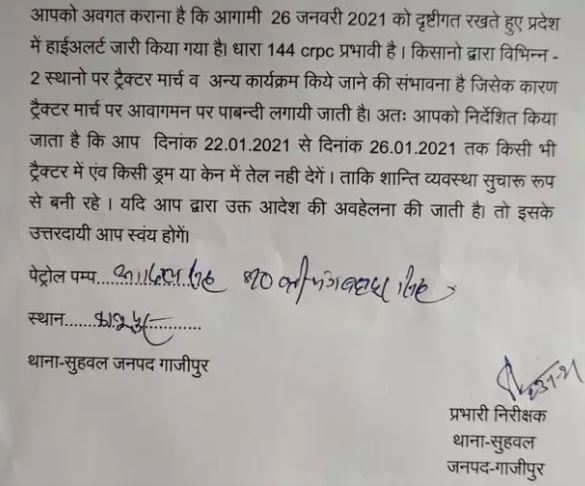 आपको अवगत कराना है कि आगामी 26 जनवरी 2021 को दृष्टीगत रखते हुए प्रदेश
में हाईअलर्ट जारी किया गया है। धारा 144 crpc प्रभावी है । किसानो द्वारा विभिन्न -
2 स्थानो पर ट्रैक्टर मार्च व अन्य कार्यक्रम किये जाने की संभावना है जिसेक कारण
ट्रैक्टर मार्च पर आवागमन पर पाबन्दी लगायी जाती है। अतः आपको निर्देशित किया
जाता है कि आप दिनांक 22.01.2021 से दिनांक 26.01.2021 तक किसी भी
ट्रैक्टर में एंव किसी ड्रम या केन में तेल नही देगें । ताकि शान्ति व्यवस्था सुचारू रूप
से बनी रहे । यदि आप द्वारा उक्त आदेश की अवहेलना की जाती है। तो इसके
उत्तरदायी आप स्वंय होगें।
पेट्रोल पम्प
स्थान
थाना-सुहवल जनपद गाजीपुर
प्रभारी निरीक्षक
थाना-सुहवल
जनपद-गाजीपुर